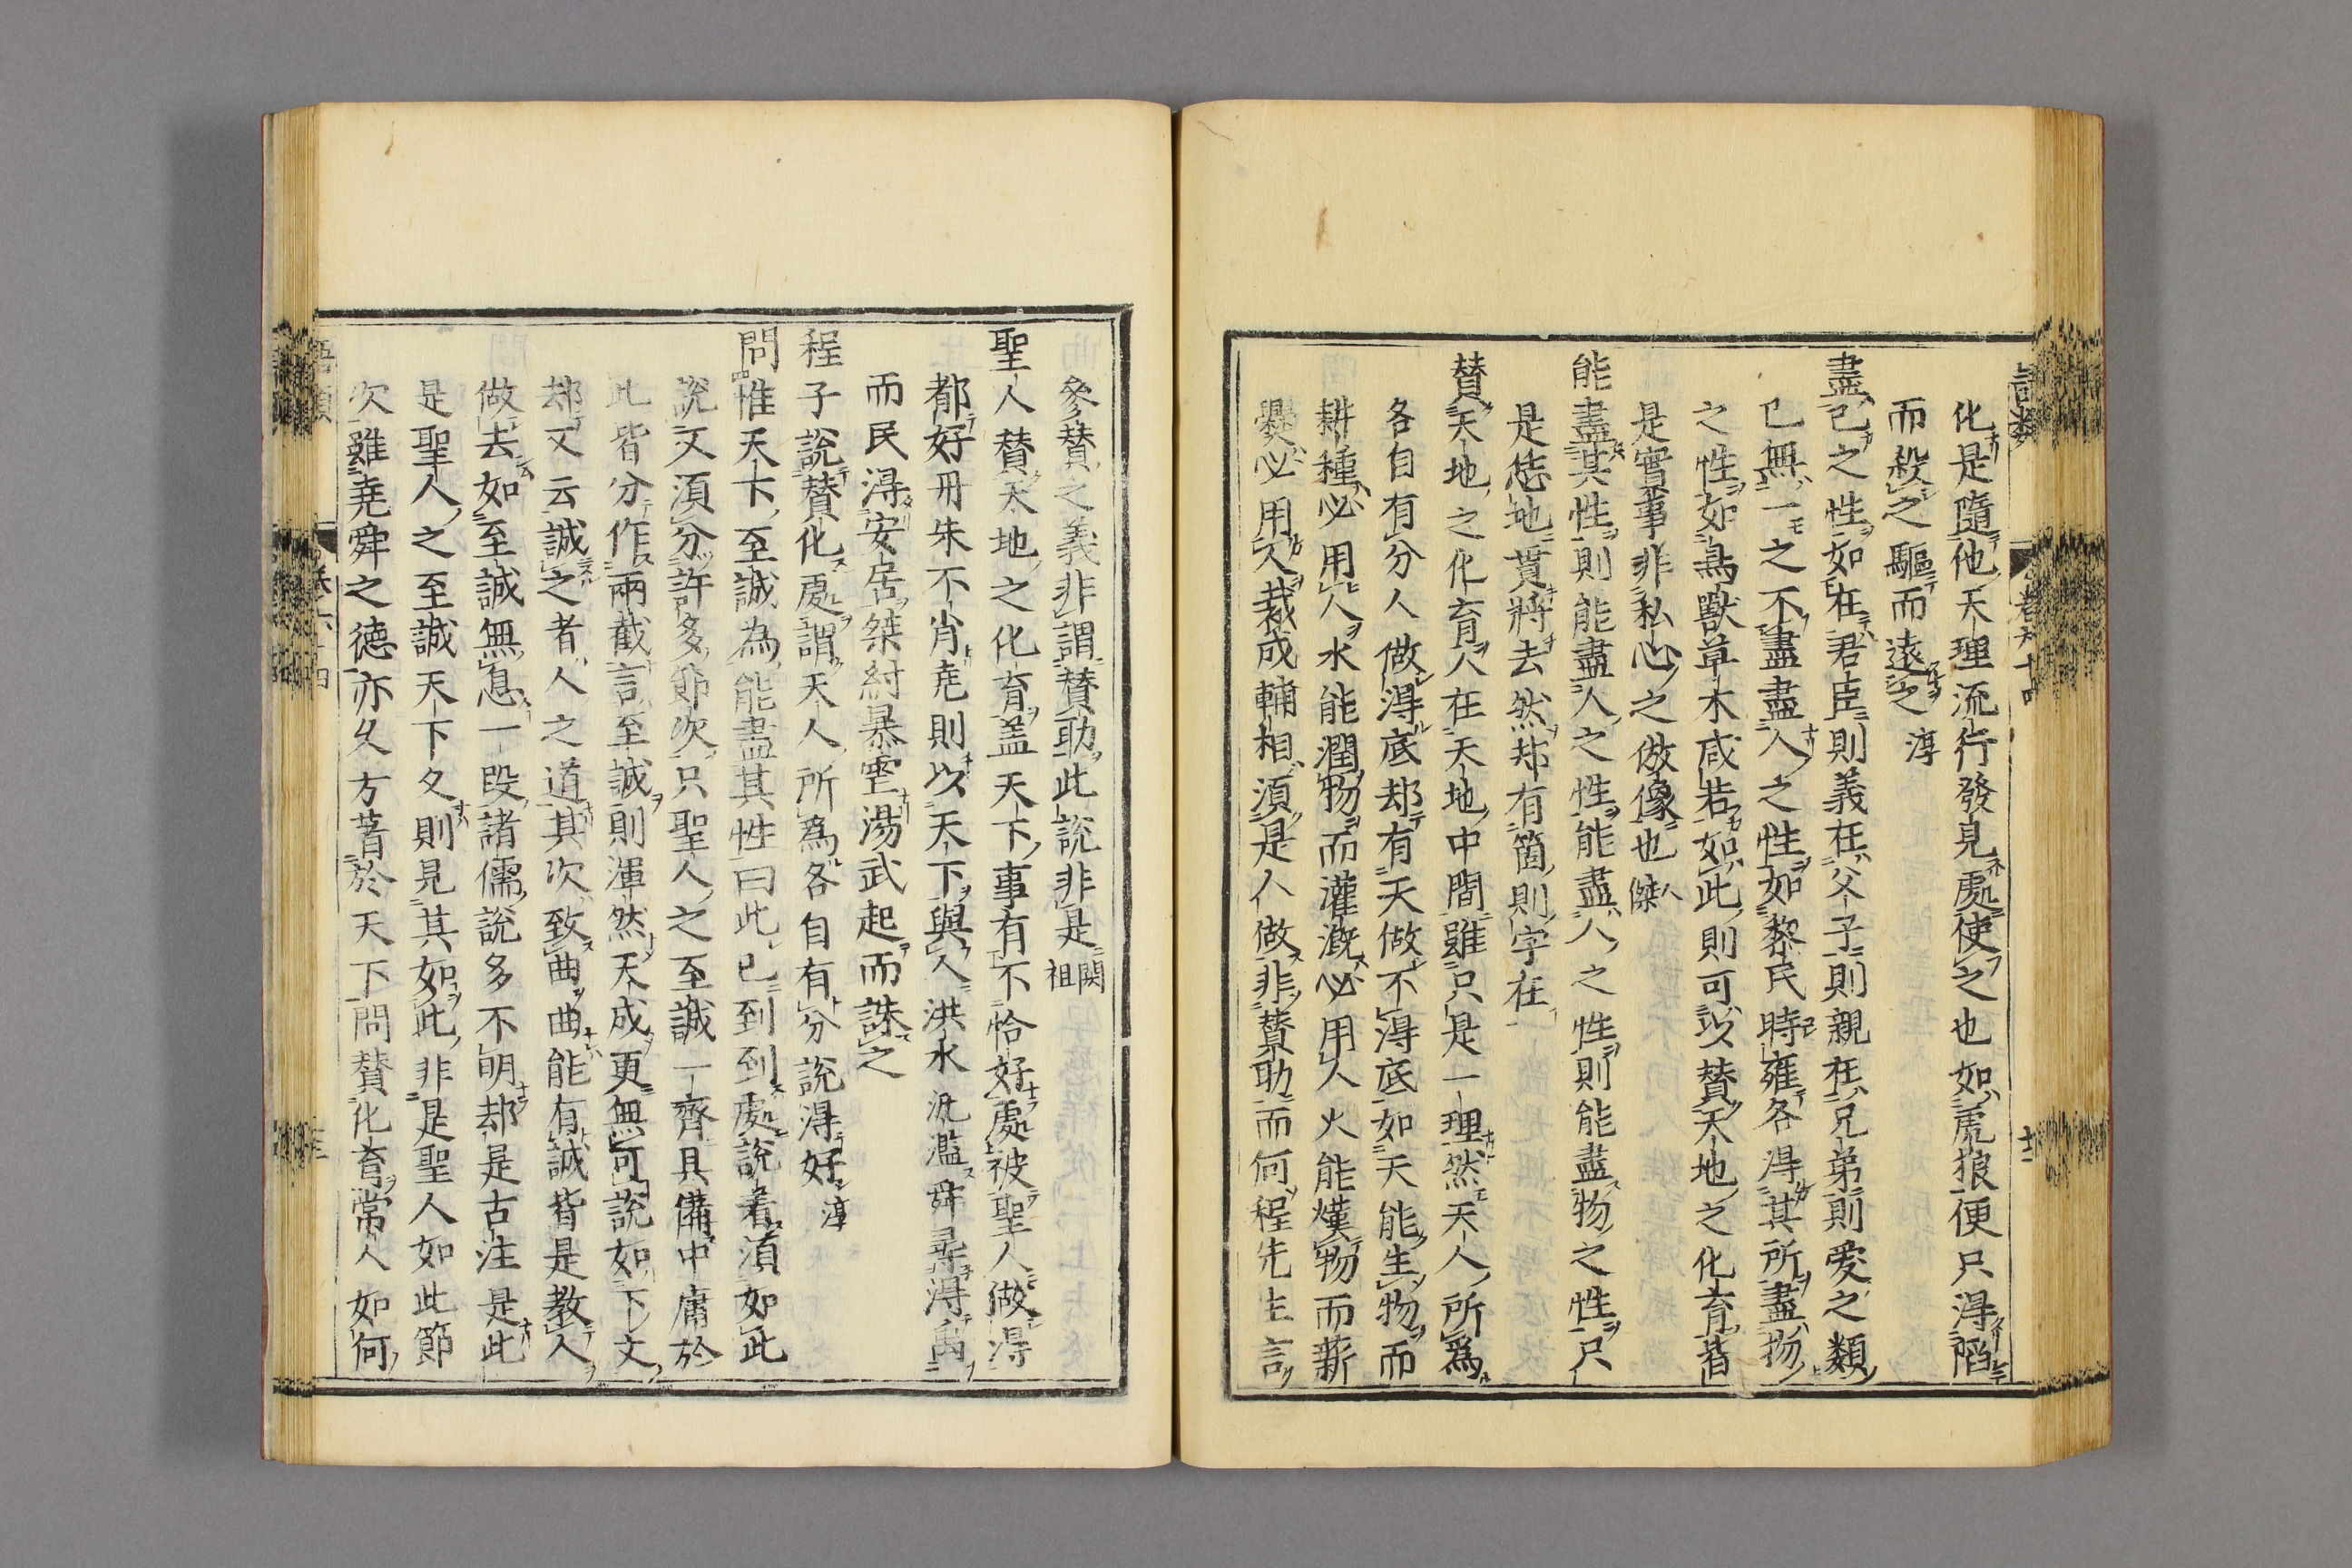 語類
卷六十四
十二
化是隨他天理流行發見處使之也如虎狼便只得陷
而殺之驅而遠之淳
盡己之性如在君臣則義在父子則親在兄弟則愛之類
己無一之不盡盡人之性如黎民時雍各得其所盡物
之性如鳥獸草木咸若如此則可以贊天地之化育皆
是實事非私心之倣像也人傑
能盡其性則能盡人之性能盡人之性則能盡物之性只
是恁地貫將去然却有箇則字在
贊天地之化育人在天地中間雖只是一理然天人所爲
各自有分人做得底却有天做不得底如天能生物而
耕種必用人水能潤物而灌漑必用人火能熯物而薪
爨必用人裁成輔相湏是人做非贊助而何程先生言
參贊之義非謂贊助此說非是閎祖
聖人贊天地之化育盖天下事有不恰好處被聖人做得
都好丹朱不肖堯則以天下與人洪水汎濫舜尋得禹
而民得安居桀紂暴虐湯武起而誅之
程子說贊化處謂天人所爲各自有分說得好淳
問惟天下至誠為能盡其性曰此已到到處說着湏如此
說又湏分許多節次只聖人之至誠一齊具備中庸於
此皆分作兩截言至誠則渾然天成更無可說如下文
却又云誠之者人之道其次致曲曲能有誠皆是教人
做去如至誠無息一段諸儒說多不明却是古注是此
是聖人之至誠天下久則見其如此非是聖人如此節
次雖堯舜之德亦久方著於天下問贊化育常人如何
語類
卷六十四